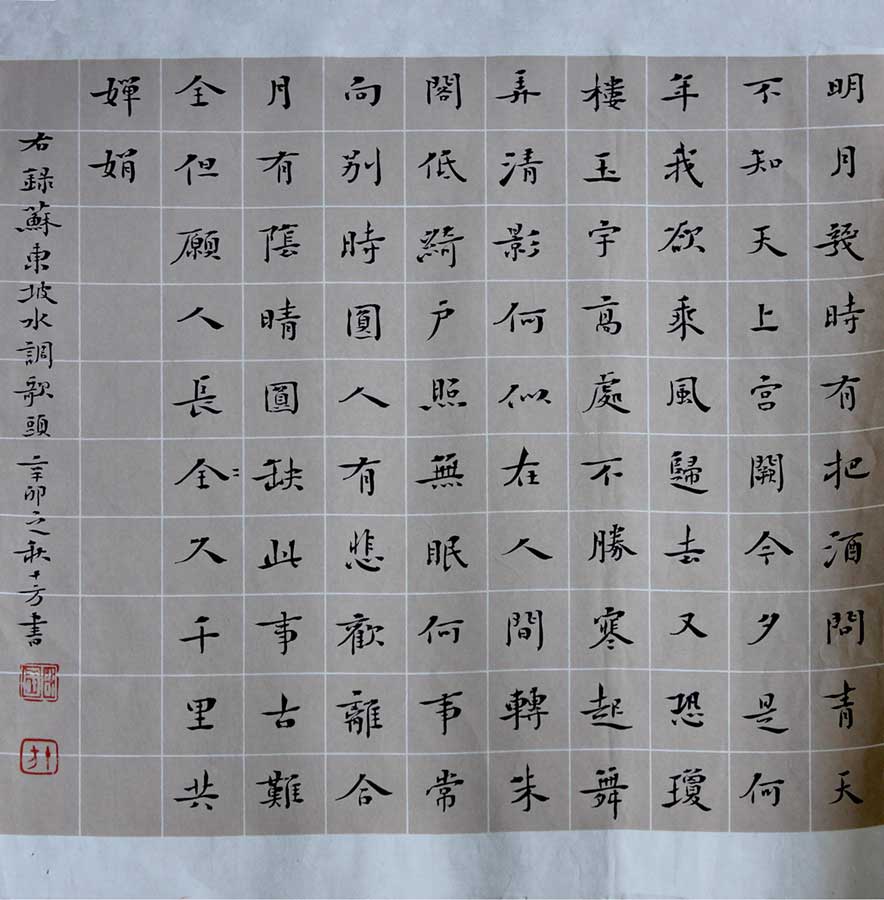 明月幾時有把酒問青天
不知天上宫闕今夕是何
年我欲乘風歸去又恐瓊
樓玉宇高處不勝寒起舞
弄清影何似在人間轉朱
閣低綺户照無眠何事常
向别時圓人有悲歡離合
月有陰晴圓缺此事古難
全但願人長全久千里共
嬋娟
右録蘇東坡水調歌頭 辛卯之秋十方書